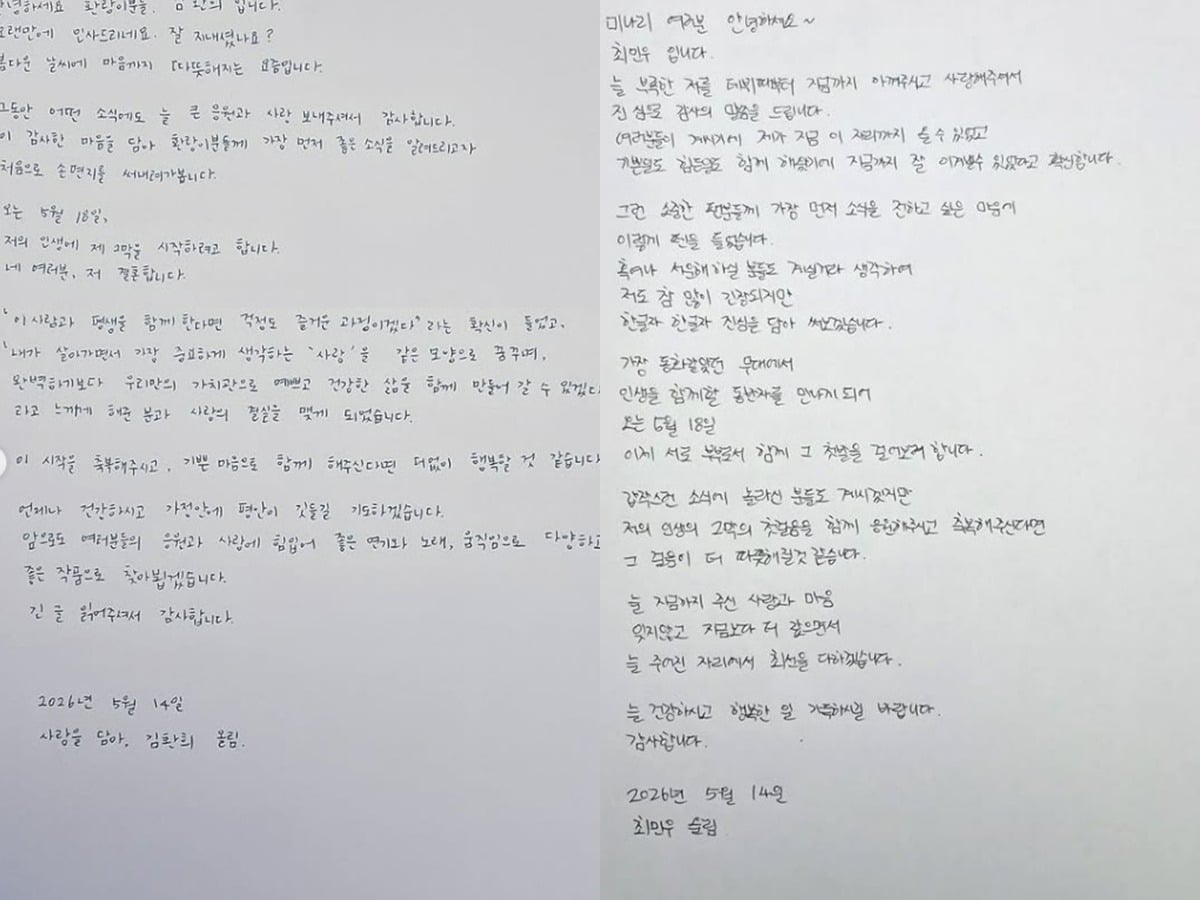 안녕하세요 환랑이분들. 김환희입니다.
오랜만에 인사드리네요. 잘 지내셨나요?
봄다운 날씨에 마음까지 따뜻해지는 요즘입니다.
그동안 어떤 소식에도 늘 큰 응원과 사랑 보내주셔서 감사합니다.
이 감사한 마음을 담아 환랑이분들께 가장 먼저 좋은 소식을 알려드리고자
처음으로 손편지를 써내려가봅니다.
오는 5월 18일,
저의 인생에 제 2막을 시작하려고 합니다.
네 여러분, 저 결혼합니다.
'이 사람과 평생을 함께 한다면 걱정도 즐거운 과정이겠다' 라는 확신이 들었고,
'내가 살아가면서 가장 중요하게 생각하는 '사랑'을 같은 모양으로 꿈꾸며,
완벽하기보다 우리만의 가치관으로 예쁘고 건강한 삶을 함께 만들어 갈 수 있겠다
라고 느끼게 해준 분과 사랑의 결실을 맺게 되었습니다.
이 시작을 축복해주시고, 기쁜 마음으로 함께 해주신다면 더없이 행복할 것 같습니다
언제나 건강하시고 가정안에 평안이 깃들길 기도하겠습니다.
앞으로도 여러분들의 응원과 사랑에 힘입어 좋은 연기와 노래, 움직임으로 다양하고
좋은 작품으로 찾아뵙겠습니다.
긴 글 읽어주셔서 감사합니다.
2026년 5월 14일
사랑을 담아, 김환희 올림.
미나리 여러분 안녕하세요~
최민우 입니다.
늘 부족한 저를 데뷔때부터 지금까지 아껴주시고 사랑해주셔서
진심으로 감사의 말씀을 드립니다.
여러분들이 계시기에 제가 지금 이 자리까지 올 수 있었고
기쁜일도 힘든일도 함께 해왔기에 지금까지 잘 이겨낼수 있었다고 확신합니다.
그런 소중한 팬분들께 가장 먼저 소식을 전하고 싶은 마음에
이렇게 펜을 들었습니다.
혹여나 서운해하실 분들도 계실거라 생각하여
저도 참 많이 긴장되지만
한글자 한글자 진심을 담아 써보겠습니다.
가장 동화같았던 무대에서
인생을 함께할 동반자를 만나게 되어
오는 5월 18일
이제 서로 부부로서 함께 그 첫발을 걸어보려 합니다.
갑작스런 소식에 놀라신 분들도 계시겠지만
저의 인생의 2막의 첫걸음을 함께 응원해주시고 축복해주신다면
그 걸음이 더 따뜻해질것 같습니다.
늘 지금까지 주신 사랑과 마음
잊지않고 지금보다 더 갚으면서
늘 주어진 자리에서 최선을 다하겠습니다.
늘 건강하시고 행복한 일 가득하시길 바랍니다.
감사합니다.
2026년 5월 14일
최민우 올림